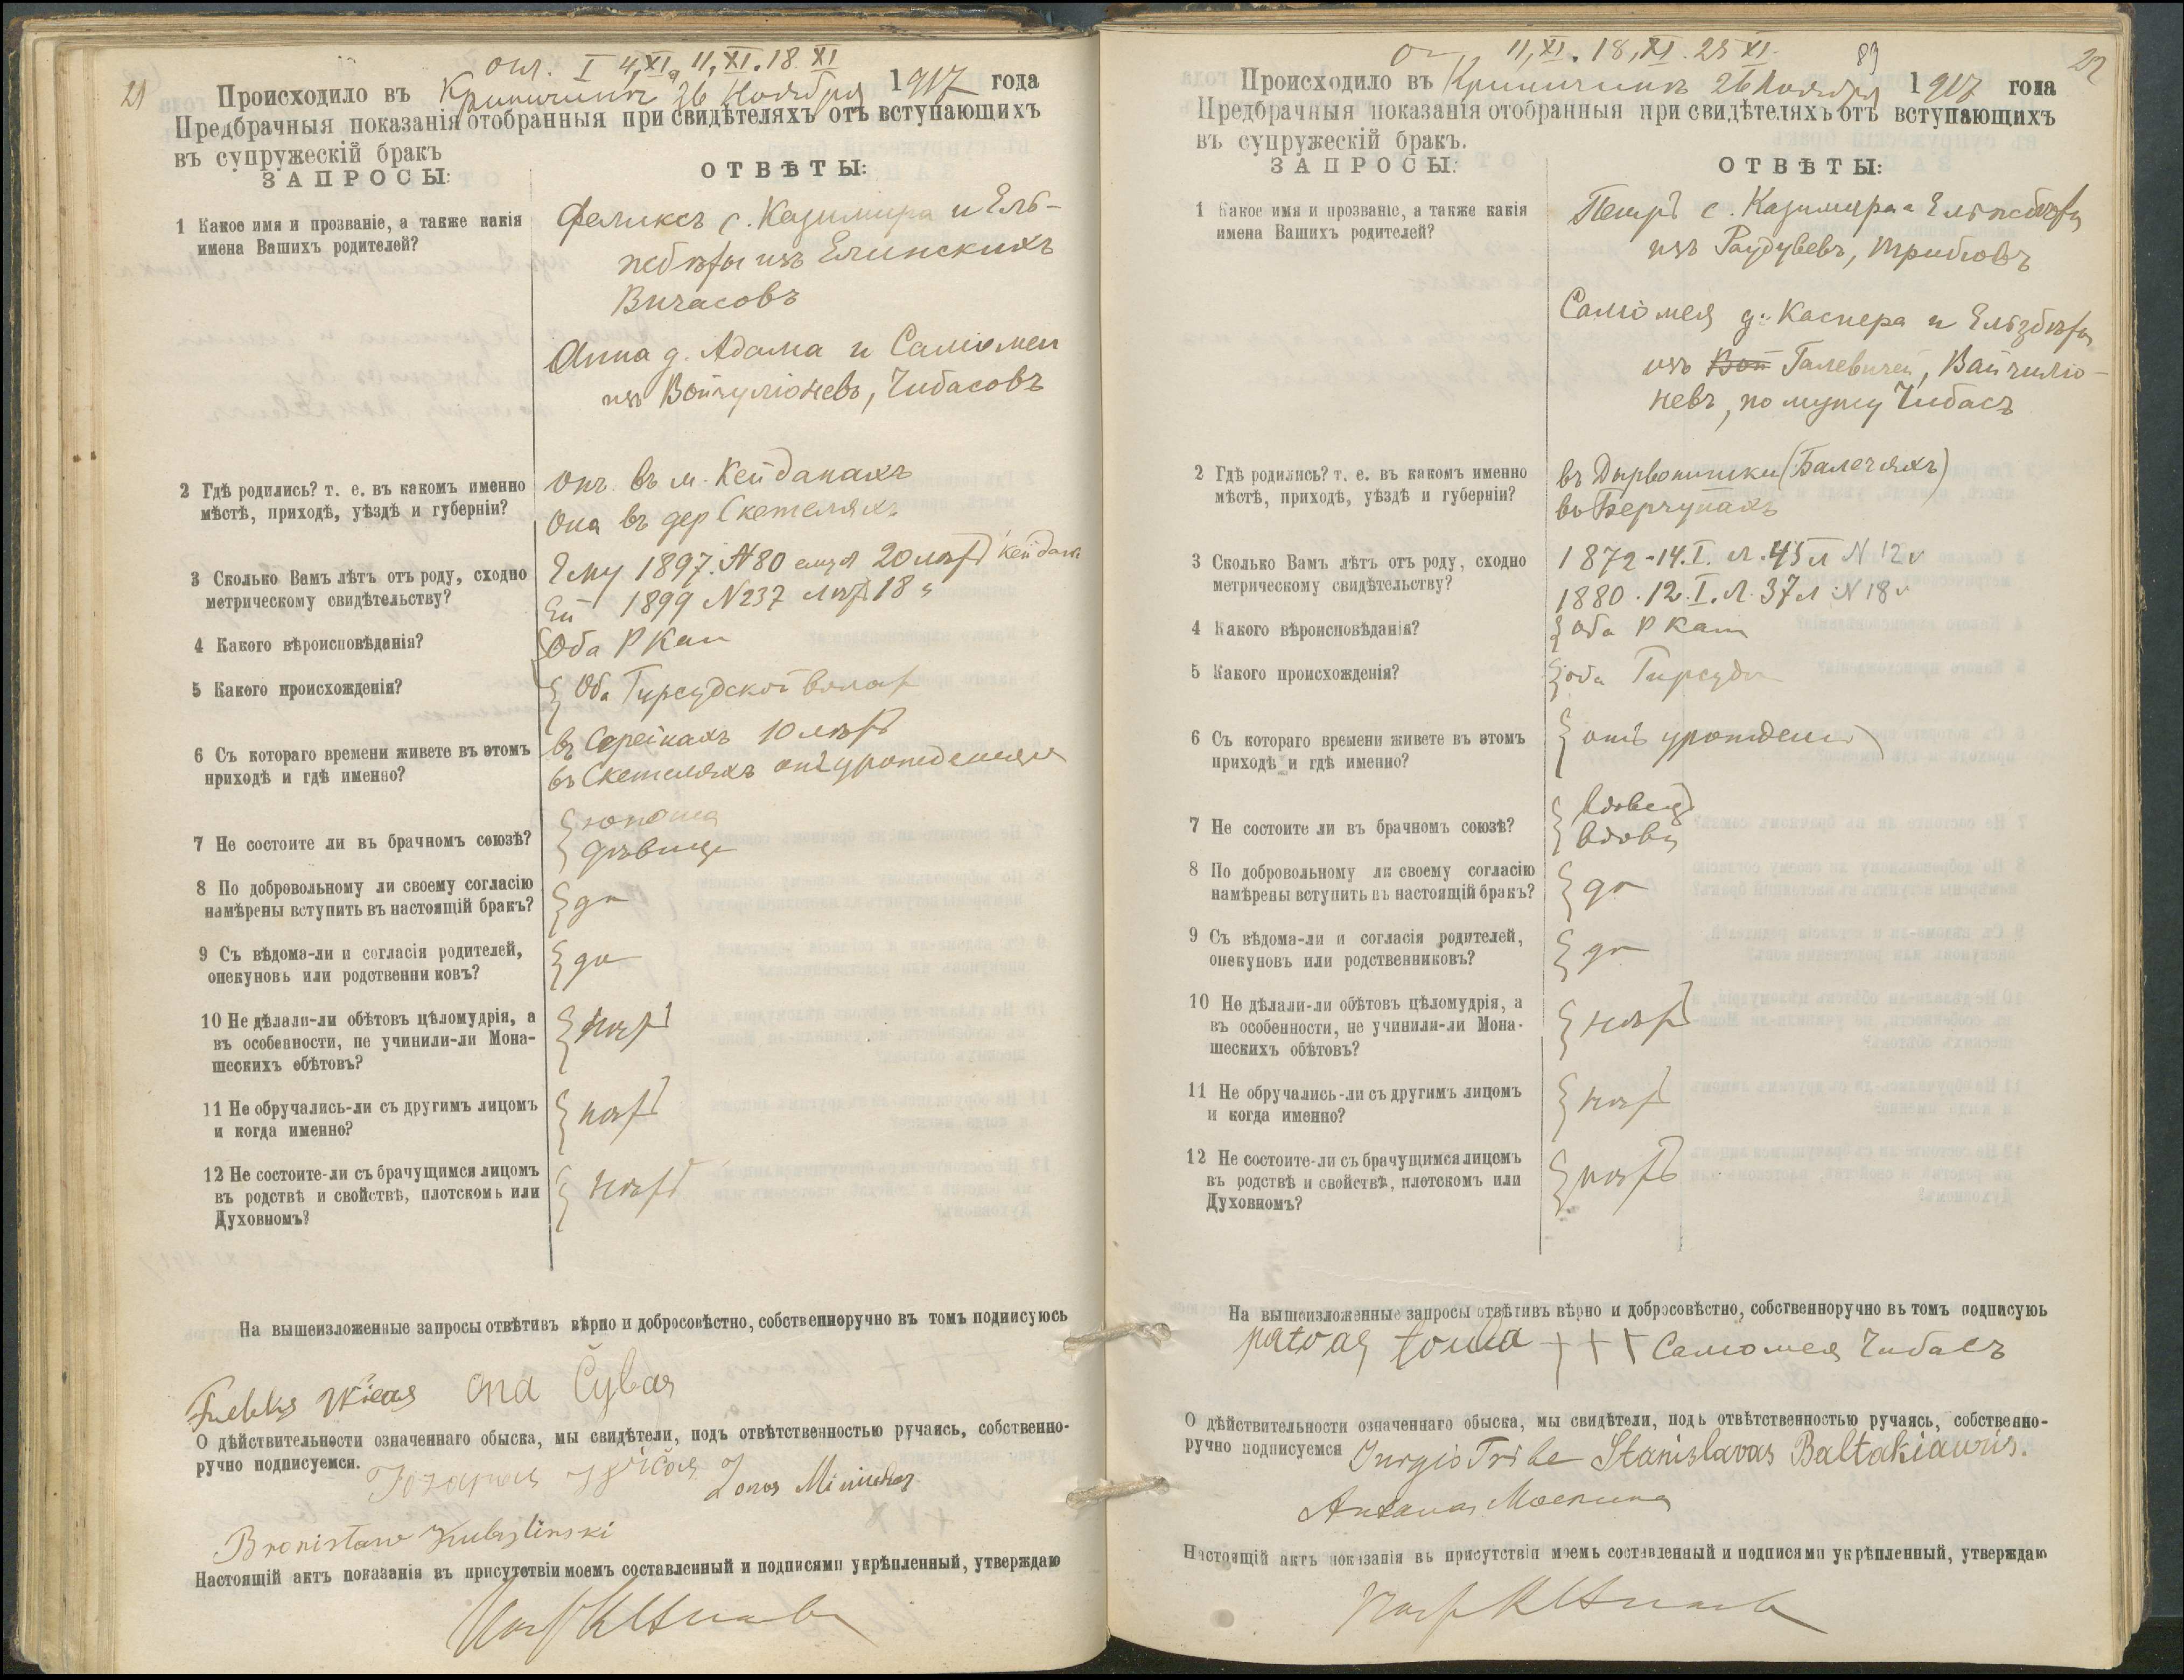 21
огл. I 4,XI, 11,XI. 18 XI
Происходило въ Криничинѣ 26 Ноября 1917 года
Предбрачныя показанія отобранныя при свидѣтеляхъ отъ вступающихъ
въ супружескій бракъ
ЗАПРОСЫ:
ОТВѢТЫ:
1 Какое имя и прозваніе, а также какія
имена Вашихъ родителей?
Феликсъ с. Казимира и Ель-
жбѣты изъ Елинскихъ
Вичасовъ
Анна д. Адама и Саломеи
изъ Войчуліоневъ, Чибасовъ
2 Гдѣ родились? т. е. въ какомъ именно
мѣстѣ, приходѣ, уѣздѣ и губерніи?
Онъ въ м. Кейданахъ
Она въ дер Скетеляхъ
3 Сколько Вамъ лѣтъ отъ роду, сходно
метрическому свидѣтельству?
Ему 1897. №80 20 лѣтъ
Ей 1899 N237 лѣтъ 18
4 Какого вѣроисповѣданія?
Оба Р Кат
5 Какого происхожденія?
Оба Гирсудской волос
6 Съ котораго времени живете въ этомъ
приходѣ и гдѣ именно?
въ 10 лѣтъ
въ Скетеляхъ отъ урожденія
7 Не состоите ли въ брачномъ союзѣ?
юноша
дѣвица
8 По добровольному ли своему согласію
намѣрены вступить въ настоящій бракъ?
да
9 Съ вѣдома-ли и согласія родителей,
опекуновъ или родственни ковъ?
да
10 Не дѣлали-ли обѣтовъ цѣломудрія, а
въ особенности, не учинили-ли Мона-
шескихъ обѣтовъ?
нѣтъ
11 Не обручались-ли съ другимъ лицомъ
и когда именно?
нѣтъ
12 Не состоите-ли съ брачущимся лицомъ
въ родствѣ и свойствѣ, плотскомъ или
Духовномъ?
нѣтъ
На вышеизложенные запросы отвѣтивъ вѣрно и добросовѣстно, собственноручно въ томъ подписуюсь
ona Čybas
О дѣйствительности означеннаго обыска, мы свидѣтели, подъ отвѣтственностью ручаясь, собственно-
ручно подписуемся.
Bronisław
Настоящій актъ показанія въ присутствіи моемъ составленный и подписями укрѣпленный, утверждаю
22
89
11,XI. 18,XI. 25 XI.
Происходило въ Криничинѣ 26 Ноября 1917 года
Предбрачныя показанія отобранныя при свидѣтеляхъ отъ вступающихъ
въ супружескій бракъ.
ЗАПРОСЫ:
ОТВѢТЫ:
1 Какое имя и прозваніе, а также какія
имена Вашихъ родителей?
Петръ с. Казимира и Ельжбѣты
изъ Раудувевъ, Трибовъ
Саломея д. Каспера и Ельзбѣты
изъ Вой Галевичей, Вайчиліо-
невъ, по мужу Чибасъ
2 Гдѣ родились? т. е. въ какомъ именно
мѣстѣ, приходѣ, уѣздѣ и губерніи?
въ Дырвонишки (Балечяхъ)
въ Берчунахъ
3 Сколько Вамъ лѣтъ отъ роду, сходно
метрическому свидѣтельству?
1872-14.I. л. 45 л N 12
1880. 12. I. л. 37 л N 18
4 Какого вѣроисповѣданія?
оба Р Кат
5 Какого происхожденія?
оба Гирсуд
6 Съ котораго времени живете въ этомъ
приходѣ и гдѣ именно?
отъ урожден
7 Не состоите ли въ брачномъ союзѣ?
вдовецъ
вдова
8 По добровольному ли своему согласію
намѣрены вступить въ настоящій бракъ?
да
9 Съ вѣдома-ли и согласія родителей,
опекуновъ или родственниковъ?
да
10 Не дѣлали-ли обѣтовъ цѣломудрія, а
въ особенности, не учинили-ли Мона-
шескихъ обѣтовъ?
нѣтъ
11 Не обручались-ли съ другимъ лицомъ
и когда именно?
нѣтъ
12 Не состоите-ли съ брачущимся лицомъ
въ родствѣ и свойствѣ, плотскомъ или
Духовномъ?
нѣтъ
На вышеизложенные запросы отвѣтивъ вѣрно и добросовѣстно, собственноручно въ томъ подписуюь
+ + + Саломея Чибасъ
О дѣйствительности означеннаго обыска, мы свидѣтели, подъ отвѣтственностью ручаясь, собственно-
ручно подписуемся Jurgio Tribe Stanislavas Baltakiauris.
Antanas
Настоящій актъ показанія въ присутствіи моемъ составленный и подписями укрѣпленный, утверждаю